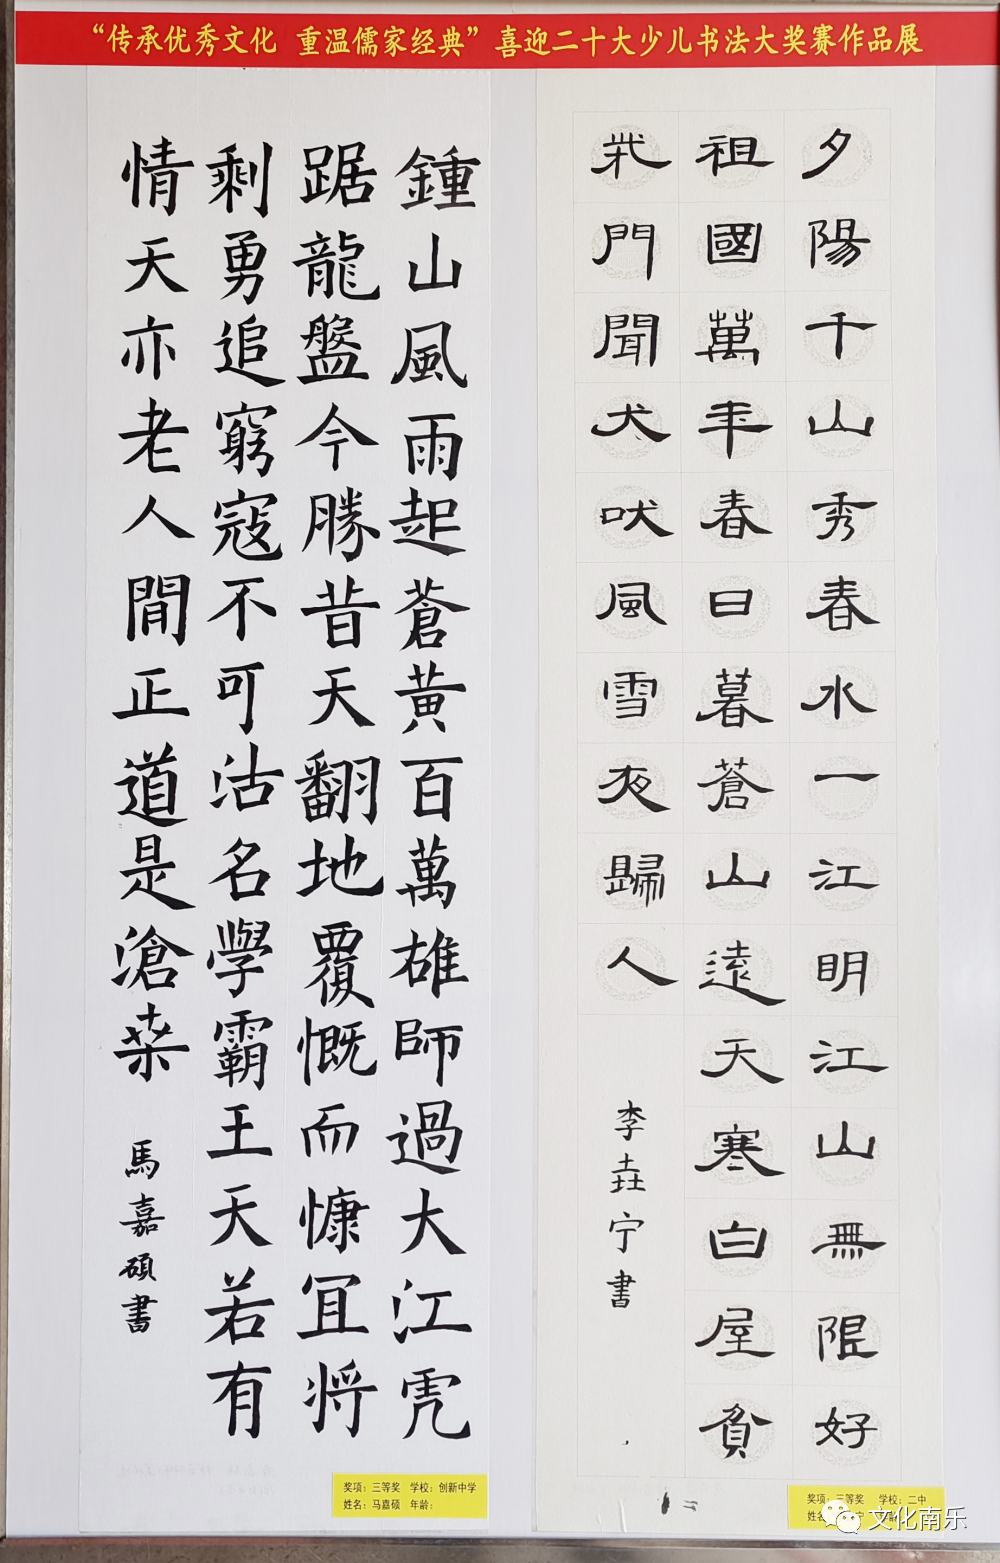 “传承优秀文化 重温儒家经典”喜迎二十大少儿书法大奖赛作品展
夕陽千山秀春水一江明江山無限好
祖國萬年春日暮蒼山遠天寒白屋貧
柴門聞犬吠風雪夜歸人
李垚宁書
鍾山風雨起蒼黃百萬雄師過大江虎
踞龍盤今勝昔天翻地覆慨而慷宜將
剩勇追窮寇不可沽名學霸王天若有
情天亦老人間正道是滄桑
馬嘉碩書
奖项：三等奖 学校：创新中学
姓名：马嘉硕 年龄：
奖项：三等奖 学校：二中
文化南乐